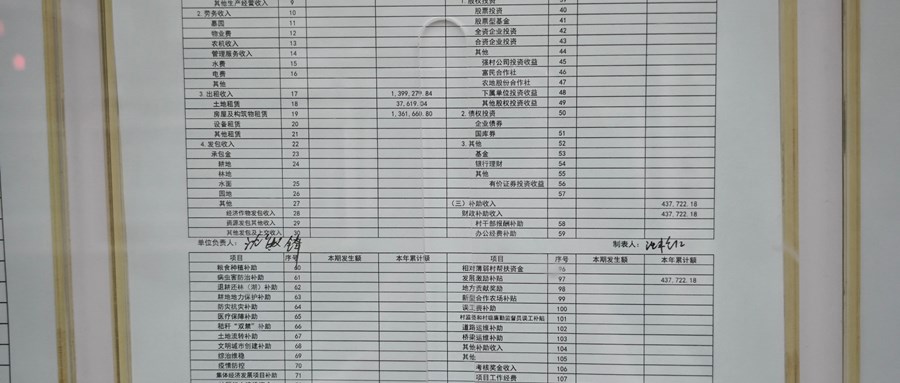 其他生产经营收入 9
2. 劳务收入 10
墓园 11
物业费 12
农机收入 13
管理服务收入 14
水费 15
电费 16
其他
3. 出租收入 17 1,399,279.84
土地租赁 18 37,619.04
房屋及构筑物租赁 19 1,361,660.80
设备租赁 20
其他租赁 21
4. 发包收入 22
承包金 23
耕地 24
林地
水面 25
园地 26
其他 27
经济作物发包收入 28
资源发包其他收入 29
其他发包及上交收入 30
1. 股权投资
股票投资 40
股票型基金 41
全资企业投资 42
合资企业投资 43
其他 44
强村公司投资收益 45
富民合作社 46
农地股份合作社 47
下属单位投资收益 48
其他股权投资收益 49
2. 债权投资 50
企业债券
国库券 51
3. 其他 52
基金 53
银行理财 54
其他 55
有价证券投资收益 56
57
(三)补助收入 437,722.18
财政补助收入 437,722.18
村干部报酬补助 58
办公经费补助 59
单位负责人:
制表人:
项目 序号 本期发生额 本年累计额
粮食种植补助 60
病虫害防治补助 61
退耕还林(湖)补助 62
耕地地力保护补助 63
防灾抗灾补助 64
医疗保障补助 65
秸秆“双禁”补助 66
土地流转补助 67
文明城市创建补助 68
综治维稳 69
疫情防控 70
集体经济发展项目补助 71
项目 序号 本期发生额 本年累计额
相对薄弱村帮扶资金 96
发展激励补贴 97 437,722.18
地方贡献奖励 98
新型合作农场补贴 99
误工费补助 100
101
道路运维补助 102
桥梁运维补助 103
其他补助收入 104
其他 105
考核奖金收入 106
项目工作经费 107